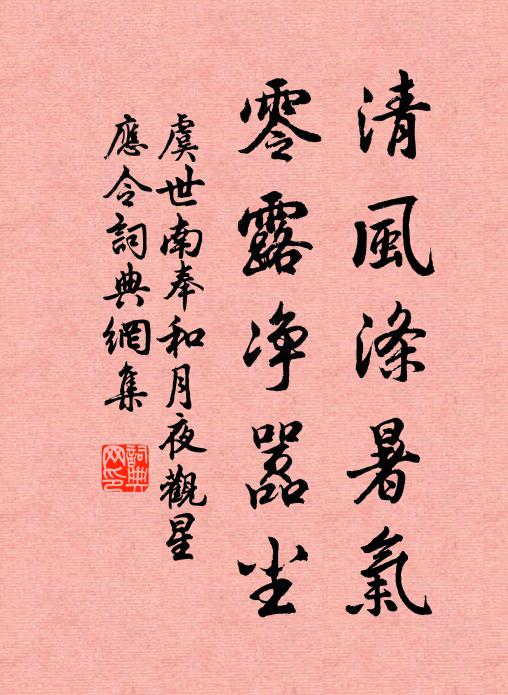 清風涤暑氣
零露净囂尘
虞世南奉和月夜觀星
應令詞典網集
詞典网印